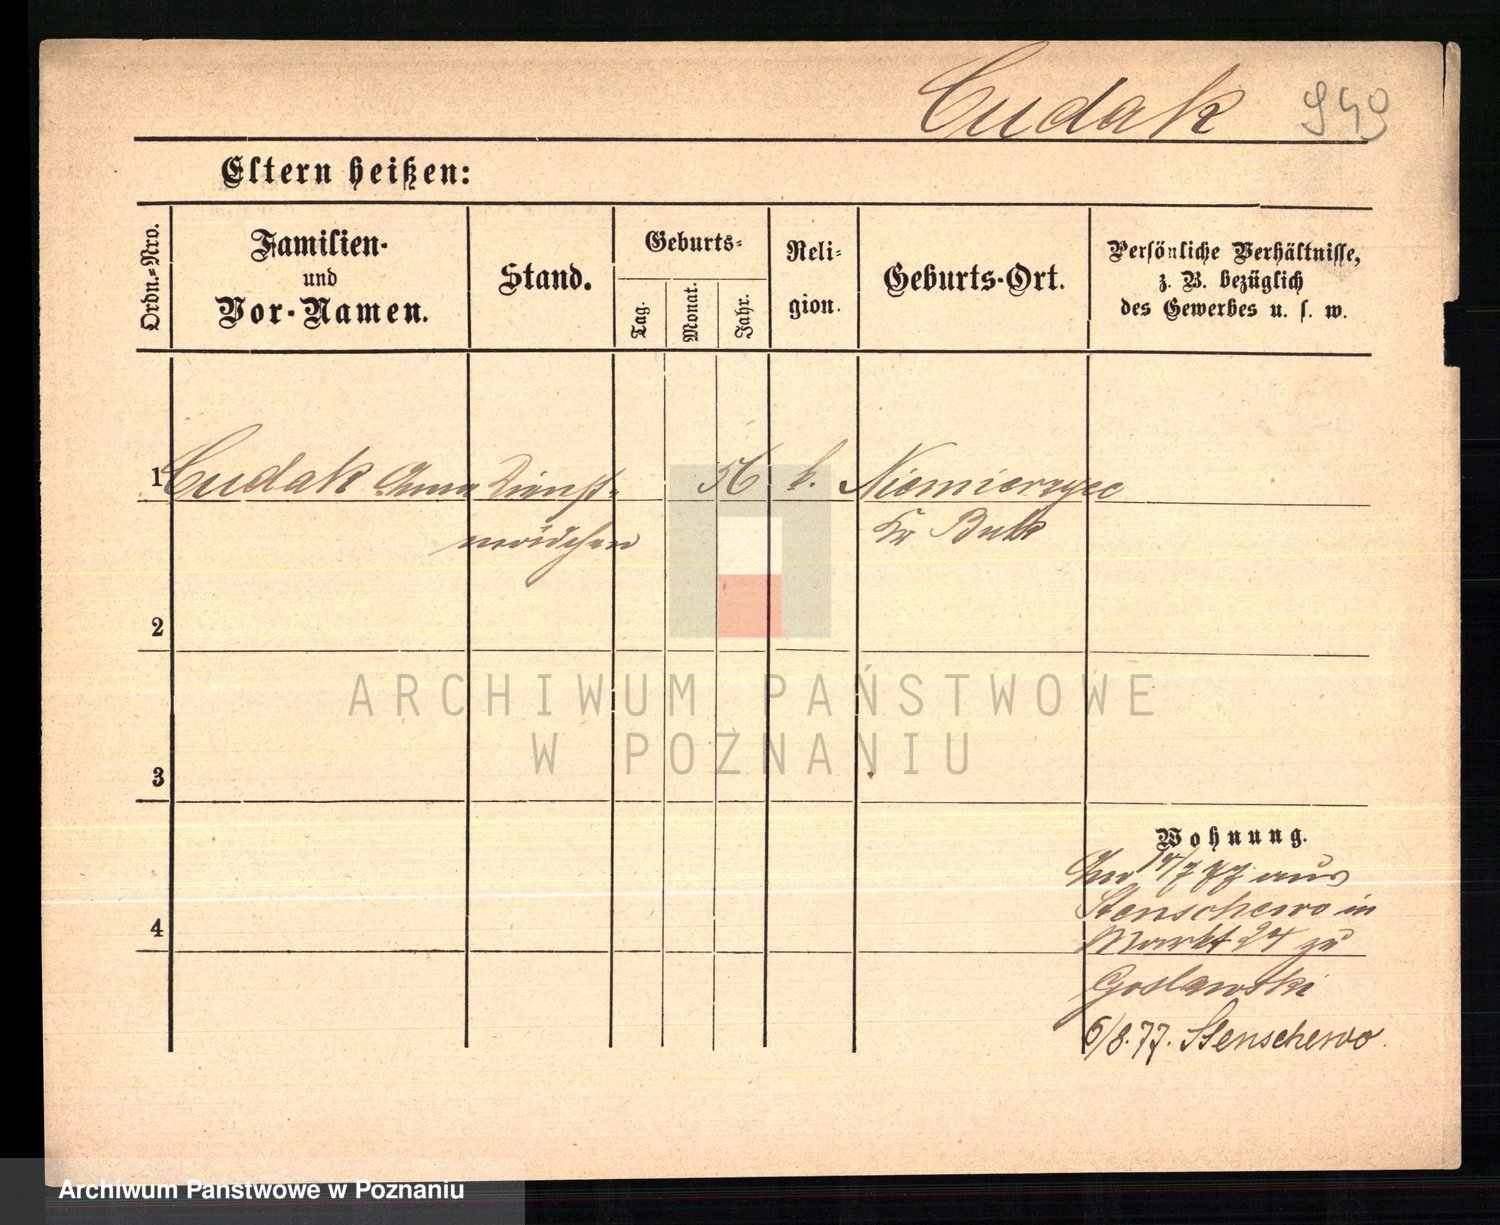 Cudak 949
Eltern heißen:
Ordn.-Nro.
Familien-
und
Vor-Namen.
Stand.
Geburts-
Tag.
Monat.
Jahr.
Reli-
gion.
Geburts-Ort.
Persönliche Verhältnisse,
z. B. bezüglich
des Gewerbes u. s. w.
1 Cudak Anna Dienst- 56 k. Niemierzyce
mädchen Kr Buk
2
ARCHIWUM PAŃSTWOWE
W POZNANIU
3
Wohnung.
14/7 77 aus
Stenschewo in
4 Markt 24 zu
Goslawski
6/8.77. Stenschewo.
Archiwum Państwowe w Poznaniu